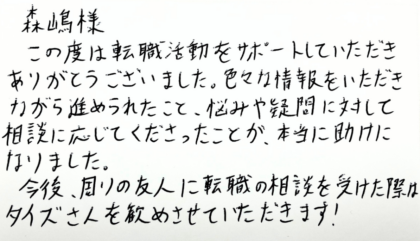 森嶋様
この度は転職活動をサポートしていただき
ありがとうございました。色々な情報をいただき
ながら進められたこと、悩みや疑問に対して
相談に応じてくださったことが、本当に助けに
なりました。
今後、周りの友人に転職の相談を受けた際は
タイズさんを歓めさせていただきます!